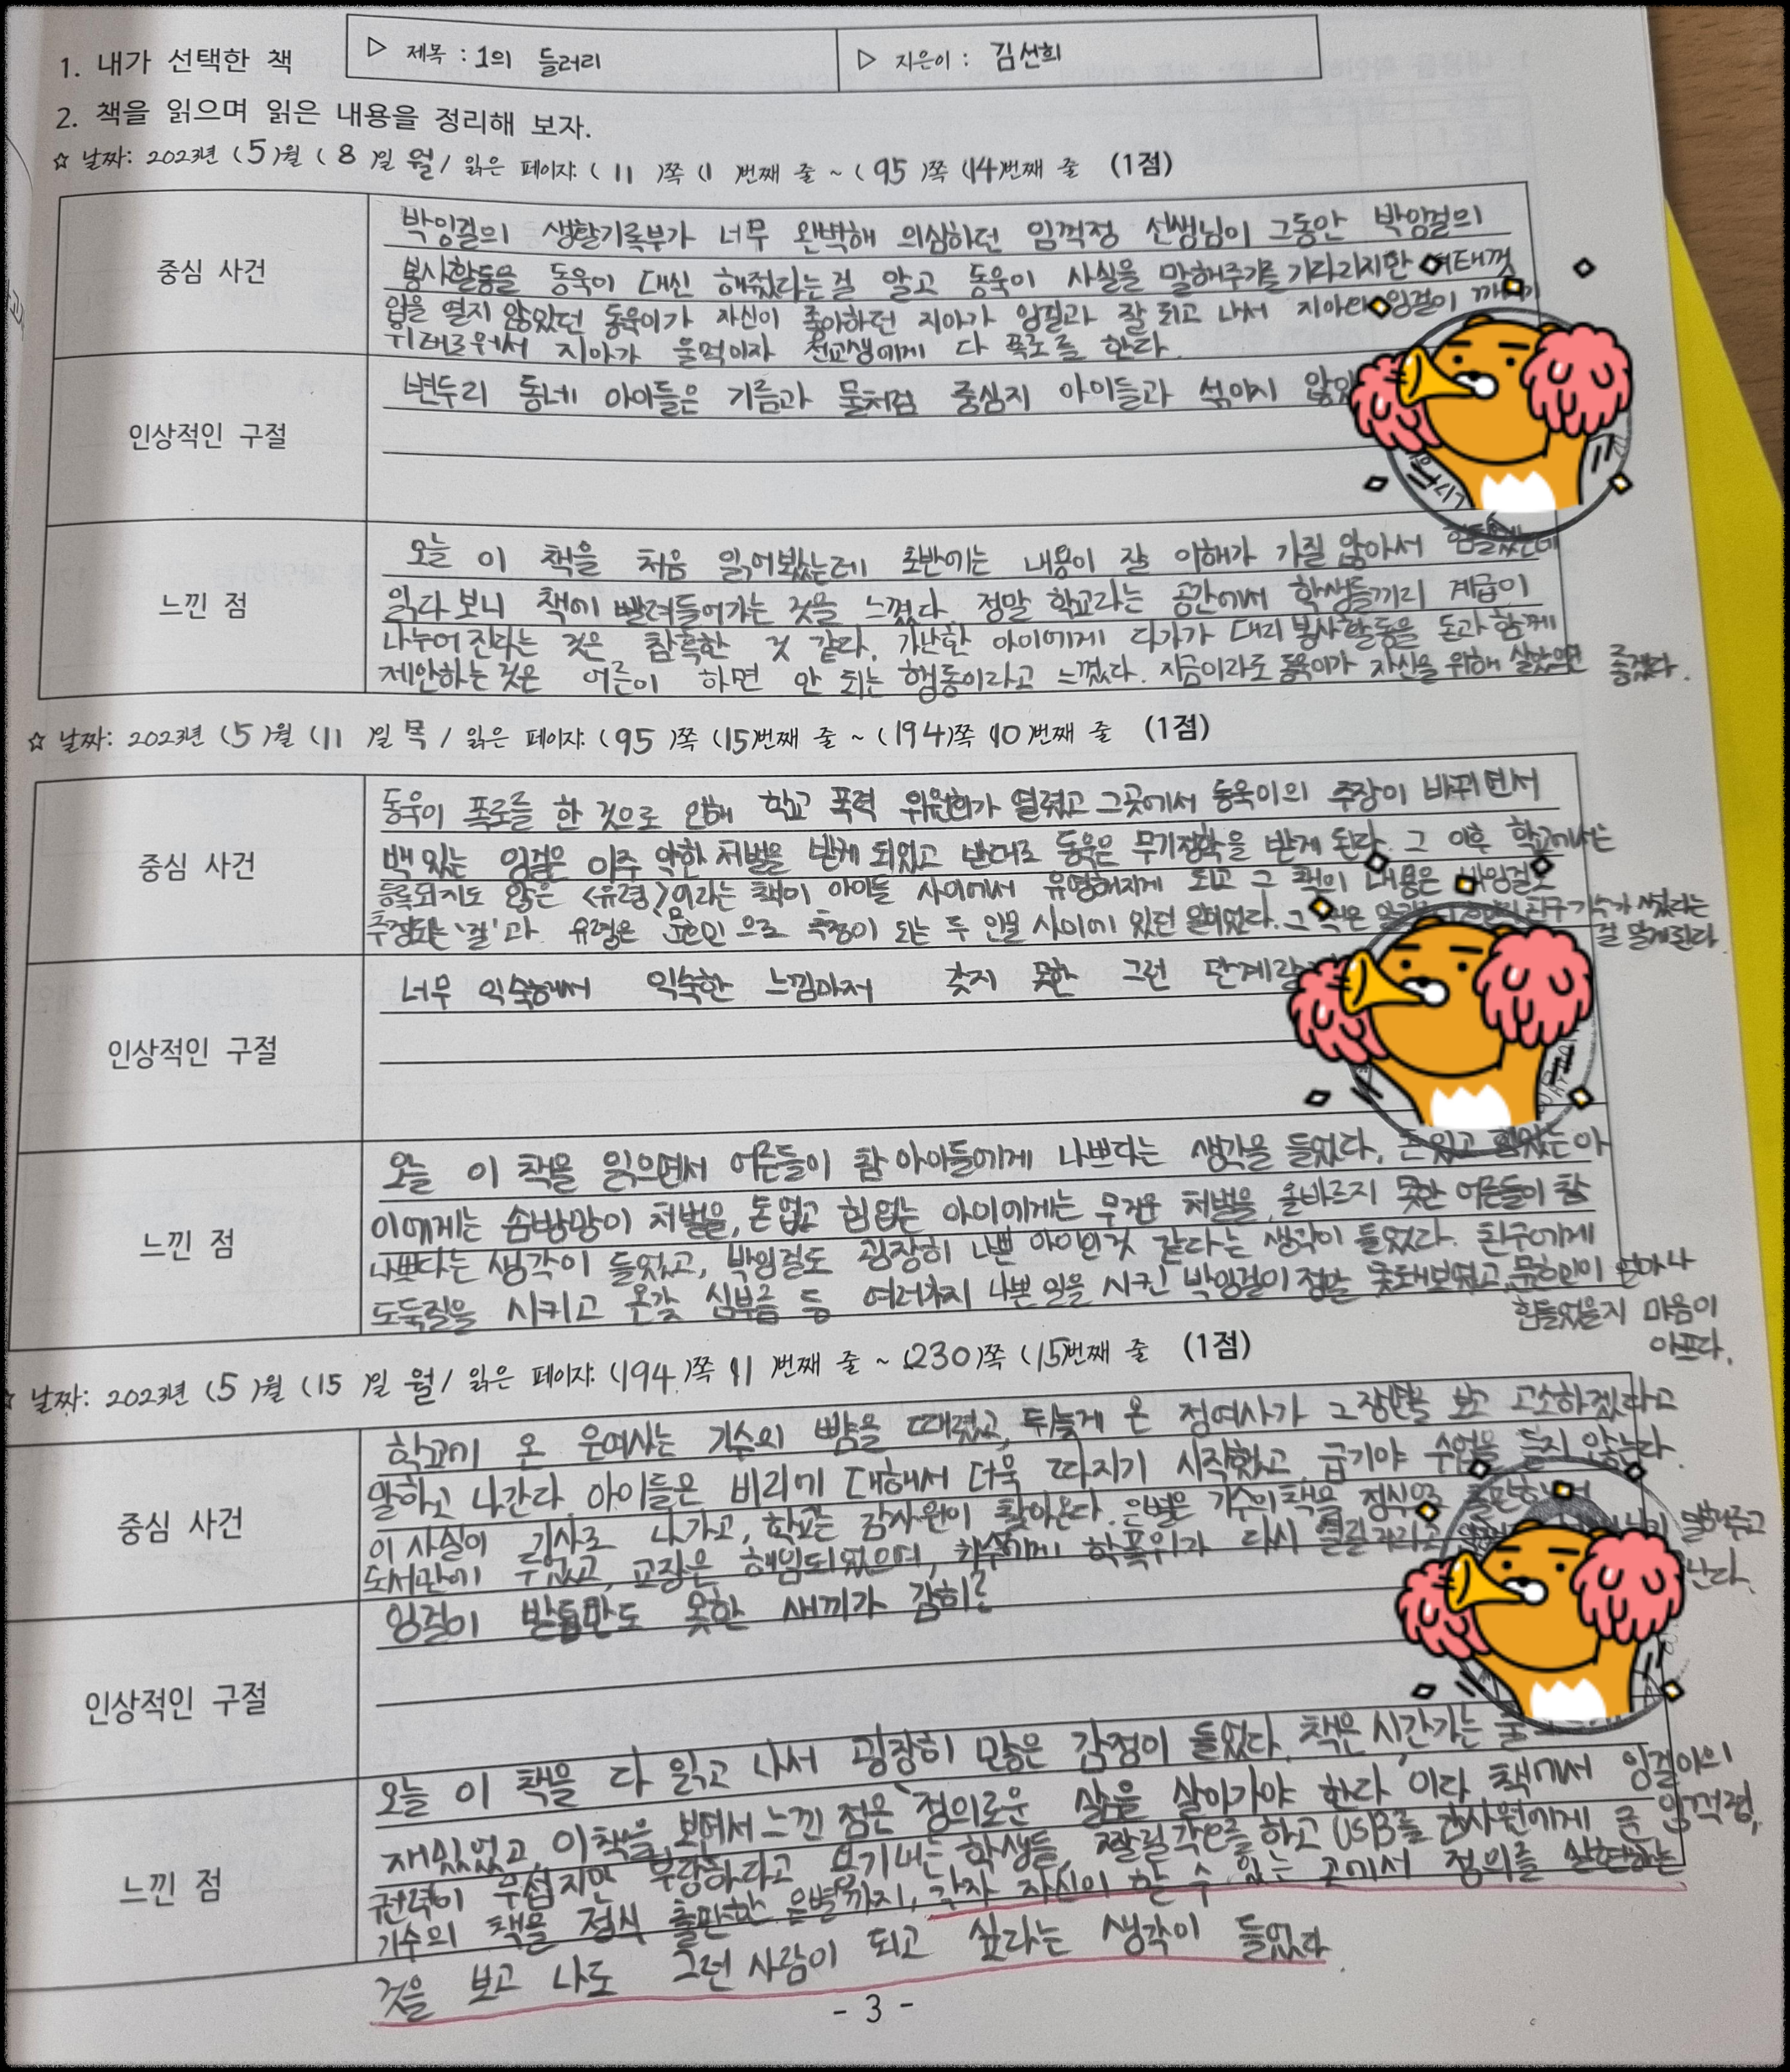 1. 내가 선택한 책
▷ 제목 : 1의 들러리
▷ 지은이 : 김선희
2. 책을 읽으며 읽은 내용을 정리해 보자.
☆ 날짜: 2023년 (5)월 (8)일 월 / 읽은 페이지: (11)쪽 (1)번째 줄 ~ (95)쪽 (14)번째 줄 (1점)
중심 사건
박잉걸의 생활기록부가 너무 완벽해 의심하던 임꺽정 선생님이 그동안 박잉걸의
봉사활동을 동욱이 대신 해줬다는걸 알고 동욱이 사실을 말해주기를 기다리지만 여태껏
입을 열지 않았던 동욱이가 자신이 좋아하던 지아가 잉걸과 잘 되고 나서 지아와 잉걸이
위태로워서 지아가 울먹이자 전교생에게 다 폭로를 한다.
인상적인 구절
변두리 동네 아이들은 기름과 물처럼 중심지 아이들과 섞이지
느낀 점
오늘 이 책을 처음 읽어봤는데 초반에는 내용이 잘 이해가 가질 않아서 힘들었는데
읽다보니 책에 빨려들어가는 것을 느꼈다. 정말 학교라는 공간에서 학생들끼리 계급이
나누어 진다는 것은 참혹한 것 같다. 가난한 아이에게 다가가 대리봉사활동을 돈과 함께
제안하는 것은 어른이 하면 안 되는 행동이라고 느꼈다. 지금이라도 동욱이가 자신을 위해 살았으면 좋겠다.
☆ 날짜: 2023년 (5)월 (11)일 목 / 읽은 페이지: (95)쪽 (15)번째 줄 ~ (194)쪽 10)번째 줄 (1점)
중심 사건
동욱이 폭로를 한 것으로 인해 학교 폭력 위원회가 열렸고 그곳에서 동욱이의 주장이 바뀌면서
백있는 잉걸은 아주 약한 처벌을 받게 되었고 반대로 동욱은 무기정학을 받게 된다. 그 이후 학교에서는
등록되지도 않은 <유령>이라는 책이 아이들 사이에서 유명해지게 되고 그 책의 내용은 박잉걸로
추정되는 '걸'과 유령은 '문호민'으로 추정이 되는 두 인물 사이에 있던 일이었다. 그 책은 친구 기수가 썼다는
걸 알게된다.
인상적인 구절
너무 익숙해서 익숙한 느낌마저 갖지 못한 그런 단계랄
느낀 점
오늘 이 책을 읽으면서 어른들이 참 아이들에게 나쁘다는 생각을 들었다. 돈있고 힘있는 아
이에게는 솜방망이 처벌을, 돈 없고 힘없는 아이에게는 무거운 처벌을, 올바르지 못한 어른들이 참
나쁘다는 생각이 들었고, 박잉걸도 굉장히 나쁜 아이인것 같다는 생각이 들었다. 친구에게
도둑질을 시키고 온갖 심부름 등 여러가지 나쁜 일을 시킨 박잉걸이 정말 못돼보였고, 문호민이 얼마나
힘들었을지 마음이
아프다.
☆ 날짜: 2023년 (5)월 (15)일 월 / 읽은 페이지: (194)쪽 11)번째 줄 ~ (230)쪽 (15)번째 줄 (1점)
중심 사건
학교에 온 은여사는 기수의 뺨을 때렸고, 뒤늦게 온 정여사가 그 장면을 보고 고소하겠다고
말하고 나간다. 아이들은 비리에 대해서 더욱 따지기 시작했고, 급기야 수업을 듣지 않는다.
이 사실이 기사로 나가고, 학교는 감사원이 찾아온다. 은별은 기수의 책을 정식으로
도서관에 두었고, 교장은 해임되었으며, 기수에게 학폭위가 다시 열릴 거라고 말해주고
난다.
인상적인 구절
잉걸이 발톱만도 못한 새끼가 감히?
느낀 점
오늘 이 책을 다 읽고 나서 굉장히 많은 감정이 들었다. 책은 시간가는 줄
재밌었고, 이 책을 보면서 느낀 점은 '정의로운 삶을 살아가야 한다'이다. 책에서 잉걸이의
권력이 무섭지만 부당하다고 용기내는 학생들, 짤릴 각오를 하고 USB를 감사원에게 준 임꺽정,
기수의 책을 정식 출판한 은별까지, 각자 자신의 할 수 있는 곳에서 정의를 실현하는
것을 보고 나도 그런 사람이 되고 싶다는 생각이 들었다.
- 3 -